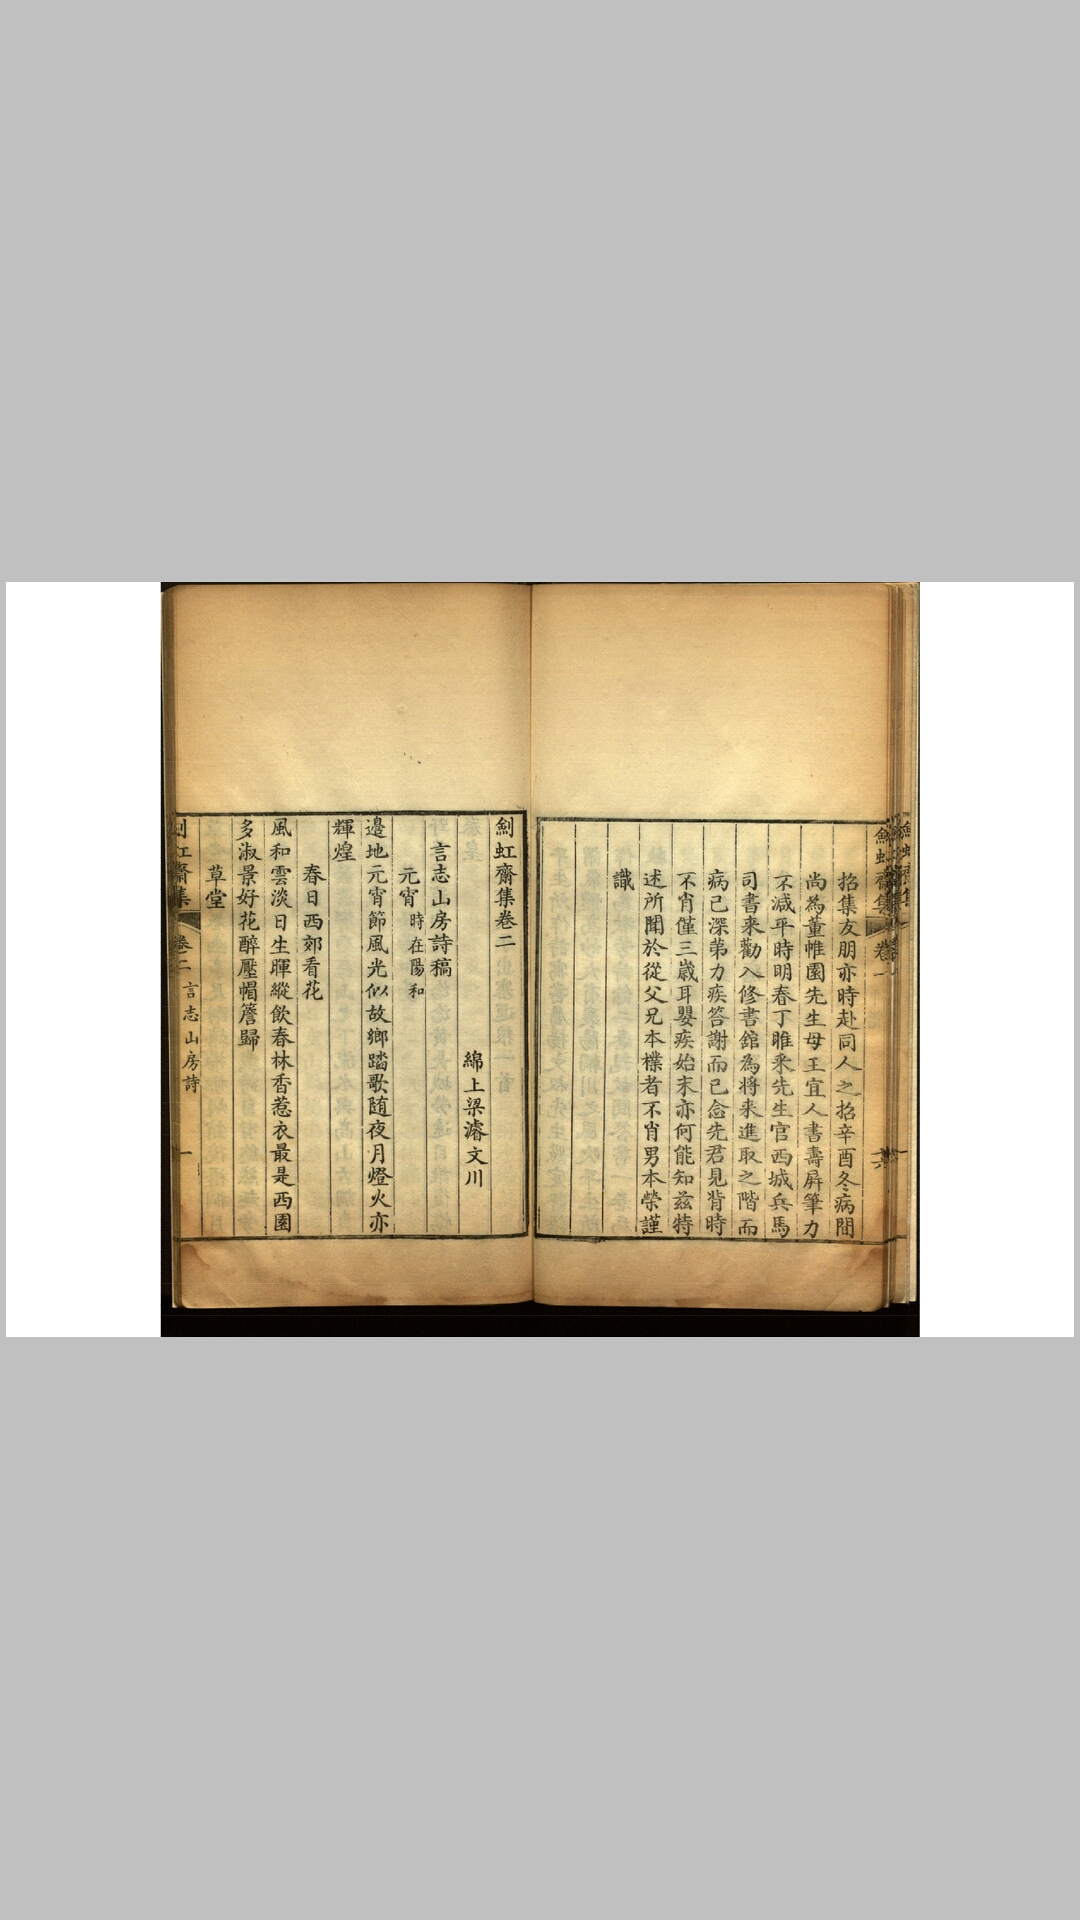 劍虹齋集
卷一
招集友朋亦時赴同人之招辛酉冬病間
尚為董帷園先生母王宜人書壽屏筆力
不減平時明春丁睢采先生官西城兵馬
司書來勸入修書館為將來進取之階而
病已深苐力疾答謝而已念先君見背時
不肖僅三歲耳嬰疾始末亦何能知茲特
述所聞於從父兄本檏者不肖男本榮謹
識
劍虹齋集卷二
綿上梁濬文川
言志山房詩稿
元宵 時在陽和
邊地元宵節風光似故鄉踏歌隨夜月燈火亦
輝煌
春日西郊看花
風和雲淡日生暉縱飲春林香惹衣最是西園
多淑景好花醉壓帽簷歸
草堂
劍虹齋集
卷二
言志山房詩
一